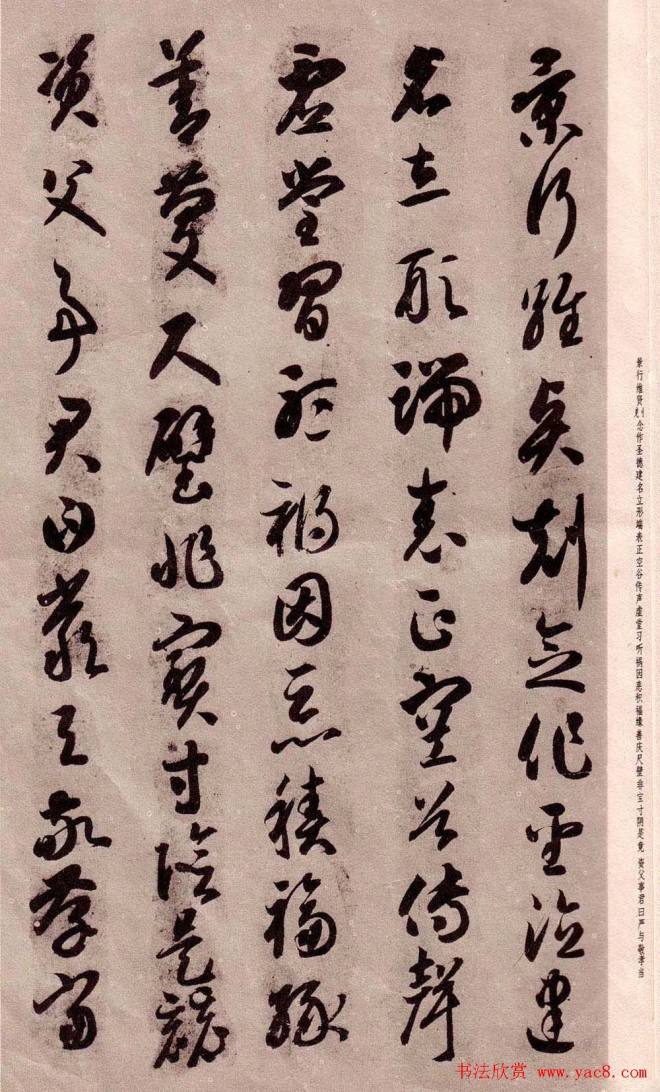 景行维贤克念作圣德建名立形端表正空谷传声虚堂习听祸因恶积福缘善庆尺璧非宝寸阴是竞 资父事君曰严与敬孝当
景行維賢剋念作聖德建
名立形端表正空谷傳聲
虛堂習聽禍因惡積福緣
善慶尺璧非寶寸陰是競
資父事君曰嚴与敬孝當
书法欣赏 www.yac8.com